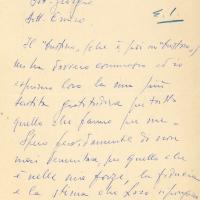 Dott. Giorgio
Dott. Enrico
E. 1.
Il "bustone", (che è poi un "bustone")
mi ha davvero commosso ed io
esprimo loro la mia più
sentita gratitudine per tutto
quello che fanno per me.
Spero ferventemente di non
mai demeritare, per quello che
è nelle mie forze, la fiducia
e la stima che Loro